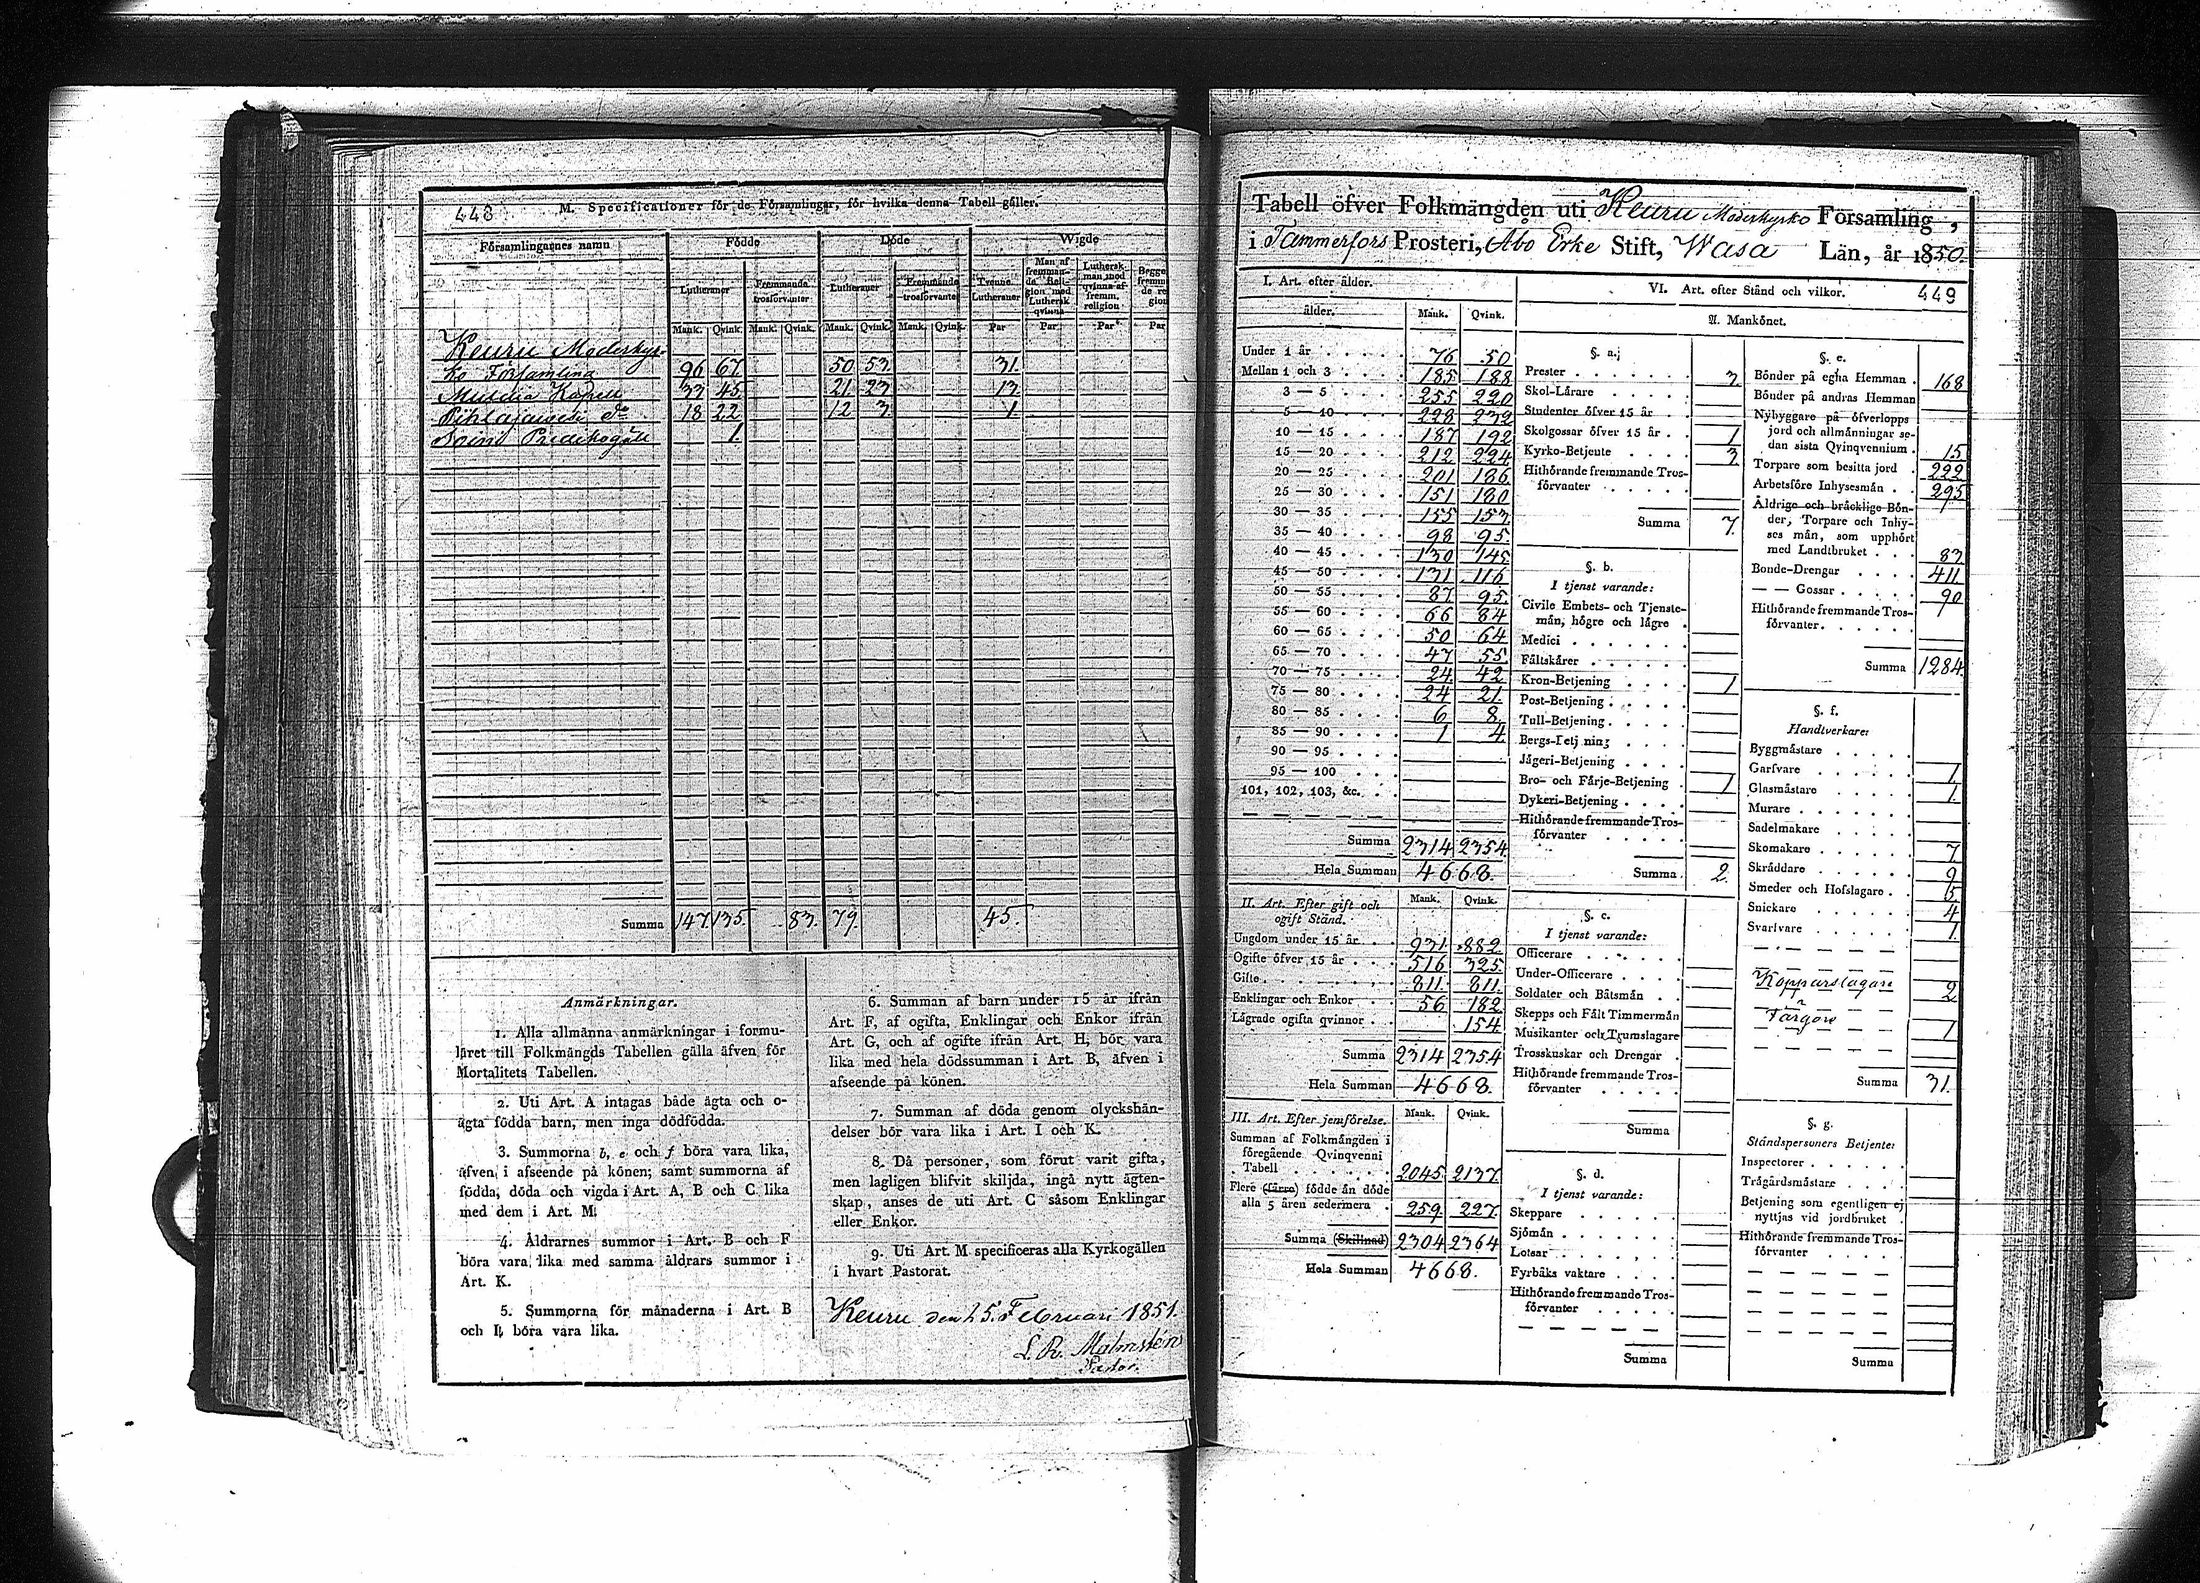 448
M. Specificationer för de Församlingar, för hvilka denna Tabell gäller.
Församlingarnes namn
Födde
Döde
Wigde
Lutheraner
Fremmande trosförvanter
Lutheraner
Fremmande trosförvanter
Tvenne Lutheraner
Man af fremmande Religion med Luthersk qvinna
Luthersk man med qvinna af fremm. religion
Begge fremmande religion
Mank. Qvink. Mank. Qvink. Mank. Qvink. Mank. Qvink. Par Par Par Par
Keuru Moderkyr-
ko Församling 96 67 50 53 31.
Multia Kapell 33 45 21 23 13
Pihlajavesi do 18 22 12 3 1
Soini Predikogäll 1
Summa 147. 135. 83. 79. 45.
Anmärkningar.
1. Alla allmänna anmärkningar i formu-
läret till Folkmängds Tabellen gälla äfven för
Mortalitets Tabellen.
2. Uti Art. A intagas både ägta och o-
ägta födda barn, men inga dödfödda.
3. Summorna b, e och f böra vara lika,
äfven i afseende på könen; samt summorna af
födda, döda och vigda i Art. A, B och C lika
med dem i Art. M.
4. Åldrarnes summor i Art. B och F
böra vara lika med samma åldrars summor i
Art. K.
5. Summorna för månaderna i Art. B
och I, böra vara lika.
6. Summan af barn under 15 år ifrån
Art. F, af ogifta, Enklingar och Enkor ifrån
Art. G, och af ogifte ifrån Art. H, bör vara
lika med hela dödssumman i Art. B, äfven i
afseende på könen.
7. Summan af döda genom olyckshän-
delser bör vara lika i Art. I och K.
8. Då personer, som förut varit gifta,
men lagligen blifvit skiljda, ingå nytt ägten-
skap, anses de uti Art. C såsom Enklingar
eller Enkor.
9. Uti Art. M specificeras alla Kyrkogällen
i hvart Pastorat.
Keuru den 25. Februari 1851.
L. R. Malmstén
Pastor.
Tabell öfver Folkmängden uti Keuru Moderkyrko Församling,
i Tammerfors Prosteri, Abo Erke Stift, Wasa Län, år 1850.
449
I. Art. efter ålder.
ålder. Mank. Qvink.
Under 1 år 76 50
Mellan 1 och 3 185 188
3 — 5 255 220
5 — 10 228 232
10 — 15 187 192
15 — 20 212 224
20 — 25 201 186
25 — 30 151 180
30 — 35 155 153
35 — 40 98 95
40 — 45 130 145
45 — 50 131 116
50 — 55 87 95
55 — 60 66 84
60 — 65 50 64
65 — 70 47 55
70 — 75 24 42
75 — 80 24 21
80 — 85 6 8
85 — 90 1 4
90 — 95
95 — 100
101, 102, 103, &c.
Summa 2314 2354
Hela Summan 4668.
II. Art. Efter gift och
ogift Stånd. Mank. Qvink.
Ungdom under 15 år 931. 882
Ogifte öfver 15 år 516 325
Gifte 811. 811.
Enklingar och Enkor 56 182
Lägrade ogifta qvinnor 154.
Summa 2314 2354
Hela Summan 4668.
III. Art. Efter jemförelse. Mank. Qvink.
Summan af Folkmängden i
föregående Qvinqvenni
Tabell 2045 2137.
Flere (färre) födde än döde
alla 5 åren sedermera 259 227.
Summa (Skillnad) 2304 2364
Hela Summan 4668.
VI. Art. efter Stånd och vilkor.
A. Mankönet.
§. a.
Prester 3
Skol-Lärare
Studenter öfver 15 år
Skolgossar öfver 15 år 1
Kyrko-Betjente 3
Hithörande fremmande Tros-
förvanter
Summa 7.
§. b.
I tjenst varande:
Civile Embets- och Tjenste-
män, högre och lägre
Medici
Fältskärer
Kron-Betjening 1
Post-Betjening
Tull-Betjening
Bergs-Betjening
Jägeri-Betjening
Bro- och Färje-Betjening 1
Dykeri-Betjening
Hithörande fremmande Tros-
förvanter
Summa 2.
§. c.
I tjenst varande:
Officerare
Under-Officerare
Soldater och Båtsmän
Skepps och Fält Timmermän
Musikanter och Trumslagare
Trosskuskar och Drengar
Hithörande fremmande Tros-
förvanter
Summa
§. d.
I tjenst varande:
Skeppare
Sjömän
Lotsar
Fyrbåks vaktare
Hithörande fremmande Tros-
förvanter
Summa
§. e.
Bönder på egna Hemman 168
Bönder på andras Hemman
Nybyggare på öfverlopps
jord och allmänningar se-
dan sista Qvinqvennium 15
Torpare som besitta jord 222
Arbetsföre Inhysesmän 295
Åldrige och bräcklige Bön-
der, Torpare och Inhy-
ses män, som upphört
med Landtbruket 83
Bonde-Drengar 411
— — Gossar 90
Hithörande fremmande Tros-
förvanter
Summa 1284.
§. f.
Handtverkare:
Byggmästare
Garfvare 1
Glasmästare 1.
Murare
Sadelmakare
Skomakare 7
Skräddare 9
Smeder och Hofslagare 5
Snickare 4
Svarfvare 1.
Kopparslagare 2
Färgare 1
Summa 31.
§. g.
Ståndspersoners Betjente:
Inspectorer
Trägårdsmästare
Betjening som egentligen ej
nyttjas vid jordbruket
Hithörande fremmande Tros-
förvanter
Summa